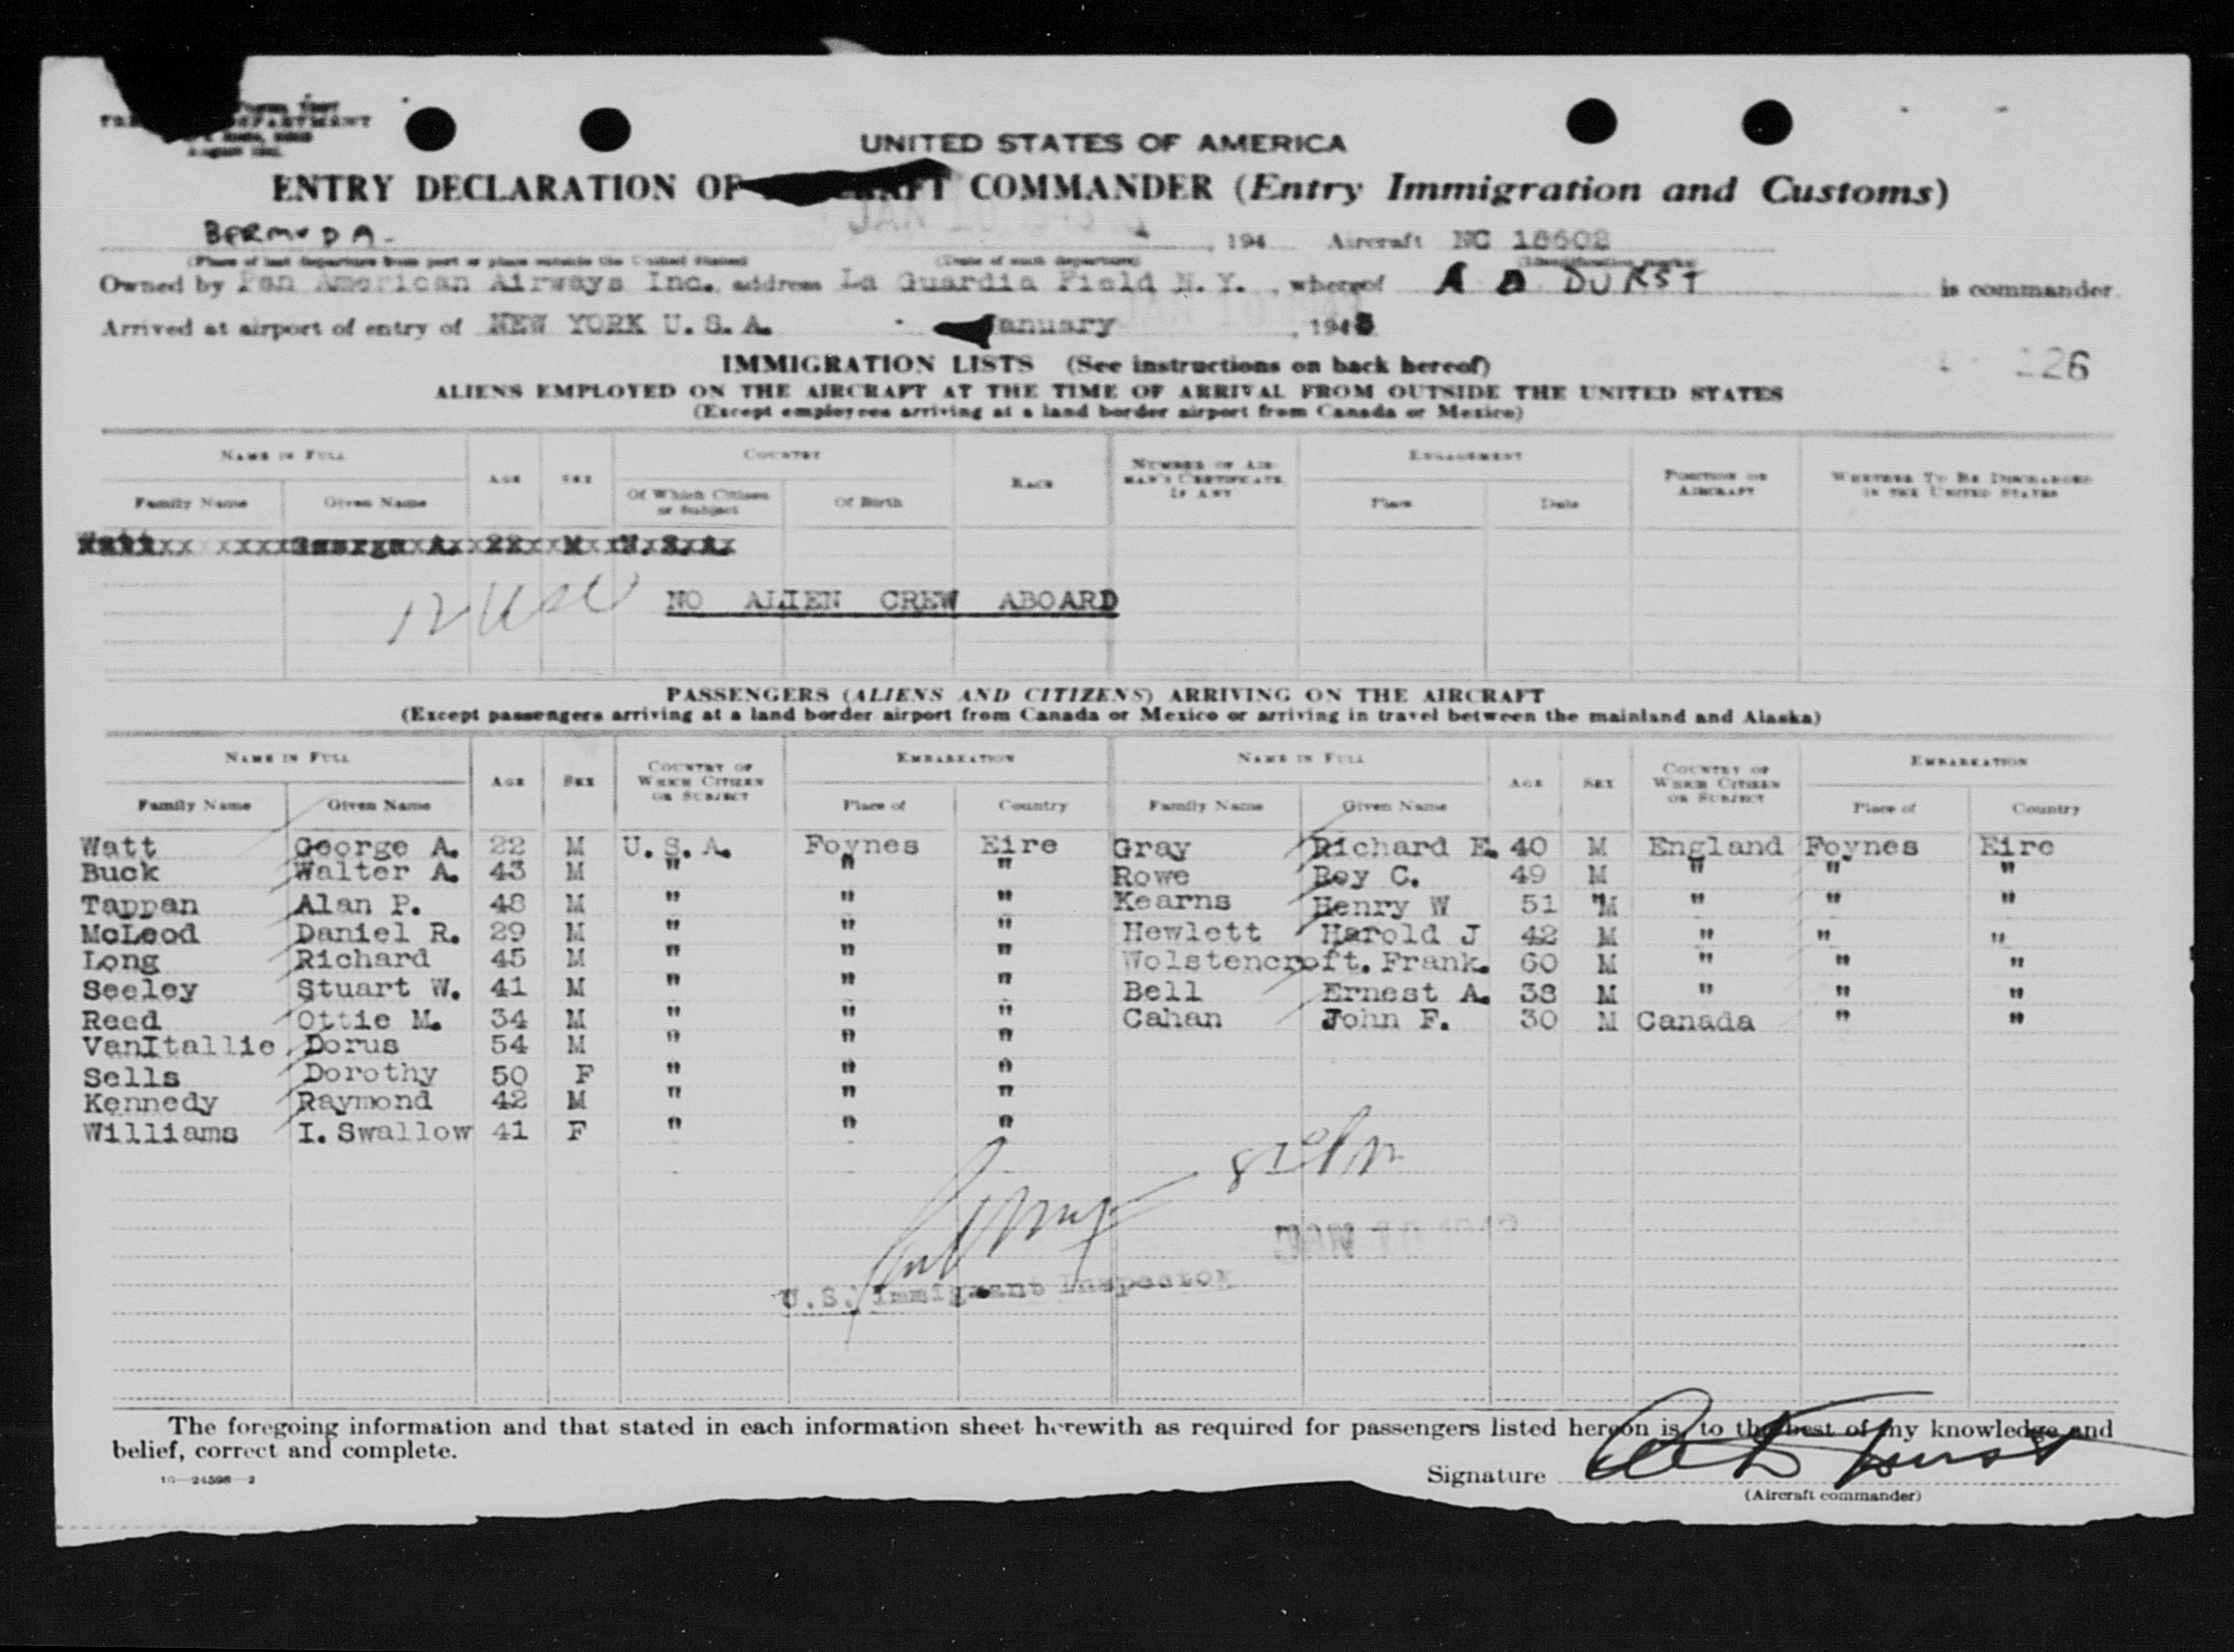 UNITED STATES OF AMERICA
ENTRY DECLARATION OF COMMANDER (Entry Immigration and Customs)
BERMUDA- , 194 Aircraft NC 18602
(Place of last departure from port or place outside the United States) (Date of such departure) (Identification marks)
Owned by Pan American Airways Inc. address La Guardia Field N.Y. , whereof A D DURST is commander
Arrived at airport of entry of NEW YORK U.S.A. January , 194
IMMIGRATION LISTS (See instructions on back hereof) 126
ALIENS EMPLOYED ON THE AIRCRAFT AT THE TIME OF ARRIVAL FROM OUTSIDE THE UNITED STATES
(Except employees arriving at a land border airport from Canada or Mexico)
NAME IN FULL AGE SEX COUNTRY RACE NUMBER OF AIRMAN'S CERTIFICATE, IF ANY ENGAGEMENT POSITION ON AIRCRAFT WHETHER TO BE DISCHARGED IN THE UNITED STATES
Family Name Given Name Of Which Citizen or Subject Of Birth Place Date
Watt George A. 22 M U.S.A.
NO ALIEN CREW ABOARD
PASSENGERS (ALIENS AND CITIZENS) ARRIVING ON THE AIRCRAFT
(Except passengers arriving at a land border airport from Canada or Mexico or arriving in travel between the mainland and Alaska)
NAME IN FULL AGE SEX COUNTRY OF WHICH CITIZEN OR SUBJECT EMBARKATION NAME IN FULL AGE SEX COUNTRY OF WHICH CITIZEN OR SUBJECT EMBARKATION
Family Name Given Name Place of Country Family Name Given Name Place of Country
Watt George A. 22 M U.S.A. Foynes Eire Gray Richard E. 40 M England Foynes Eire
Buck Walter A. 43 M " " " Rowe Roy C. 49 M " " "
Tappan Alan P. 48 M " " " Kearns Henry W 51 "M " " "
McLeod Daniel R. 29 M " " " Hewlett Harold J 42 M " " "
Long Richard 45 M " " " Wolstencroft. Frank. 60 M " " "
Seeley Stuart W. 41 M " " " Bell Ernest A. 38 M " " "
Reed Ottie M. 34 M " " " Cahan John F. 30 M Canada " "
VanItallie Dorus 54 M " " "
Sells Dorothy 50 F " " "
Kennedy Raymond 42 M " " "
Williams I. Swallow 41 F " " "
U.S. Immigrant Inspector
The foregoing information and that stated in each information sheet herewith as required for passengers listed hereon is, to the best of my knowledge and
belief, correct and complete.
16—24598—2
Signature A D Durst
(Aircraft commander)